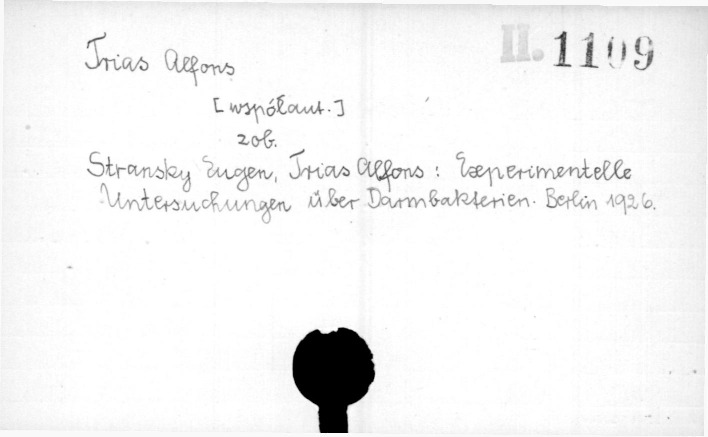 II. 1109
Trias Alfons
[współaut.]
zob.
Stransky Eugen, Trias Alfons: Experimentelle
Untersuchungen über Darmbakterien. Berlin 1926.